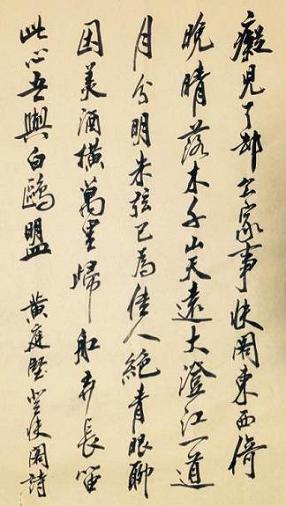 癡兒了却公家事快閣東西倚
晚晴落木千山天遠大澄江一道
月分明朱弦已為佳人絕青眼聊
因美酒橫萬里歸船弄長笛
此心吾與白鷗盟 黃庭堅登快閣詩